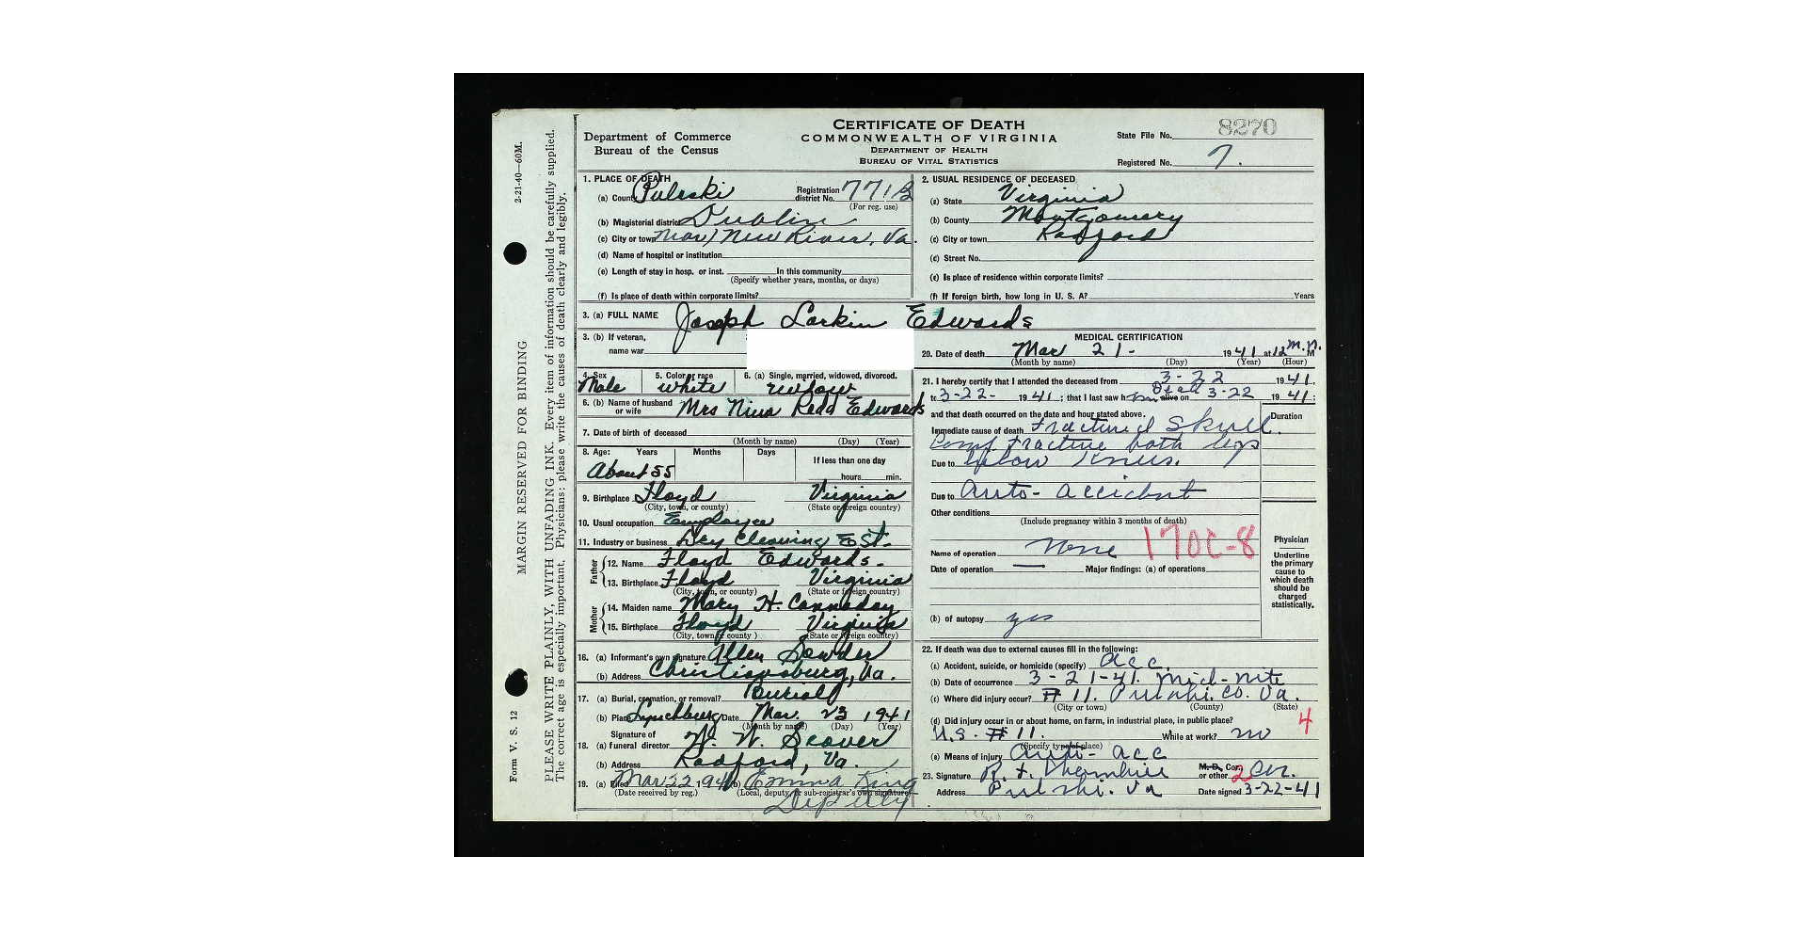 CERTIFICATE OF DEATH
COMMONWEALTH OF VIRGINIA
DEPARTMENT OF HEALTH
BUREAU OF VITAL STATISTICS
Department of Commerce
Bureau of the Census
State File No. 8270
Registered No. 7.
2-21-40—60M.
MARGIN RESERVED FOR BINDING
Form V. S. 12
PLEASE WRITE PLAINLY, WITH UNFADING INK. Every item of information should be carefully supplied.
The correct age is especially important. Physicians: please write the causes of death clearly and legibly.
1. PLACE OF DEATH
(a) County Pulaski Registration district No. 771B
(For reg. use)
(b) Magisterial district Dublin
(c) City or town Near) New River, Va.
(d) Name of hospital or institution
(e) Length of stay in hosp. or inst. In this community
(Specify whether years, months, or days)
(f) Is place of death within corporate limits?
2. USUAL RESIDENCE OF DECEASED
(a) State Virginia
(b) County Montgomery
(c) City or town Radford
(d) Street No.
(e) Is place of residence within corporate limits?
(f) If foreign birth, how long in U. S. A? Years
3. (a) FULL NAME Joseph Larkin Edwards
3. (b) If veteran,
name war
4. Sex Male
5. Color or race white
6. (a) Single, married, widowed, divorced. widow
6. (b) Name of husband or wife Mrs Nina Redd Edwards
7. Date of birth of deceased
(Month by name) (Day) (Year)
8. Age: Years Months Days If less than one day
About 55 hours min.
9. Birthplace Floyd Virginia
(City, town, or county) (State or foreign country)
10. Usual occupation Employee
11. Industry or business Dry Cleaning Est.
Father
12. Name Floyd Edwards.
13. Birthplace Floyd Virginia
(City, town, or county) (State or foreign country)
Mother
14. Maiden name Mary H. Cannaday
15. Birthplace Floyd Virginia
(City, town or county) (State or foreign country)
16. (a) Informant's own signature Allen
(b) Address Christiansburg, Va.
17. (a) Burial, cremation, or removal? Burial
(b) Place Lynchburg Date Mar. 23 1941
(Month by name) (Day) (Year)
Signature of
18. (a) funeral director W. W. Seaver
(b) Address Radford, Va.
19. (a) Filed Mar 22 1941 (b) Emma King
(Date received by reg.) (Local, deputy, or sub-registrar's own signature)
Deputy
MEDICAL CERTIFICATION
20. Date of death Mar 21- 1941 at 12 M.N.
(Month by name) (Day) (Year) (Hour)
21. I hereby certify that I attended the deceased from 3-22 1941
to 3-22- 1941; that I last saw him alive on Dead 3-22 1941;
and that death occurred on the date and hour stated above.
Duration
Immediate cause of death Fractured Skull.
Comp. fracture both legs
Due to below knees.
Due to Auto- accident
Other conditions
(Include pregnancy within 3 months of death)
Name of operation none 170C-8
Date of operation — Major findings: (a) of operations
(b) of autopsy yes
Physician
Underline
the primary
cause to
which death
should be
charged
statistically.
22. If death was due to external causes fill in the following:
(a) Accident, suicide, or homicide (specify) acc.
(b) Date of occurrence 3-21-41. Mid-nite
(c) Where did injury occur? # 11. Pulaski. Co. Va.
(City or town) (County) (State)
(d) Did injury occur in or about home, on farm, in industrial place, in public place? 4
U.S. # 11. While at work? no
(Specify type of place)
(e) Means of injury Auto- acc
23. Signature R. F. M. D., Cor., or other 2 Cor.
Address Pulaski. Va Date signed 3-22-41